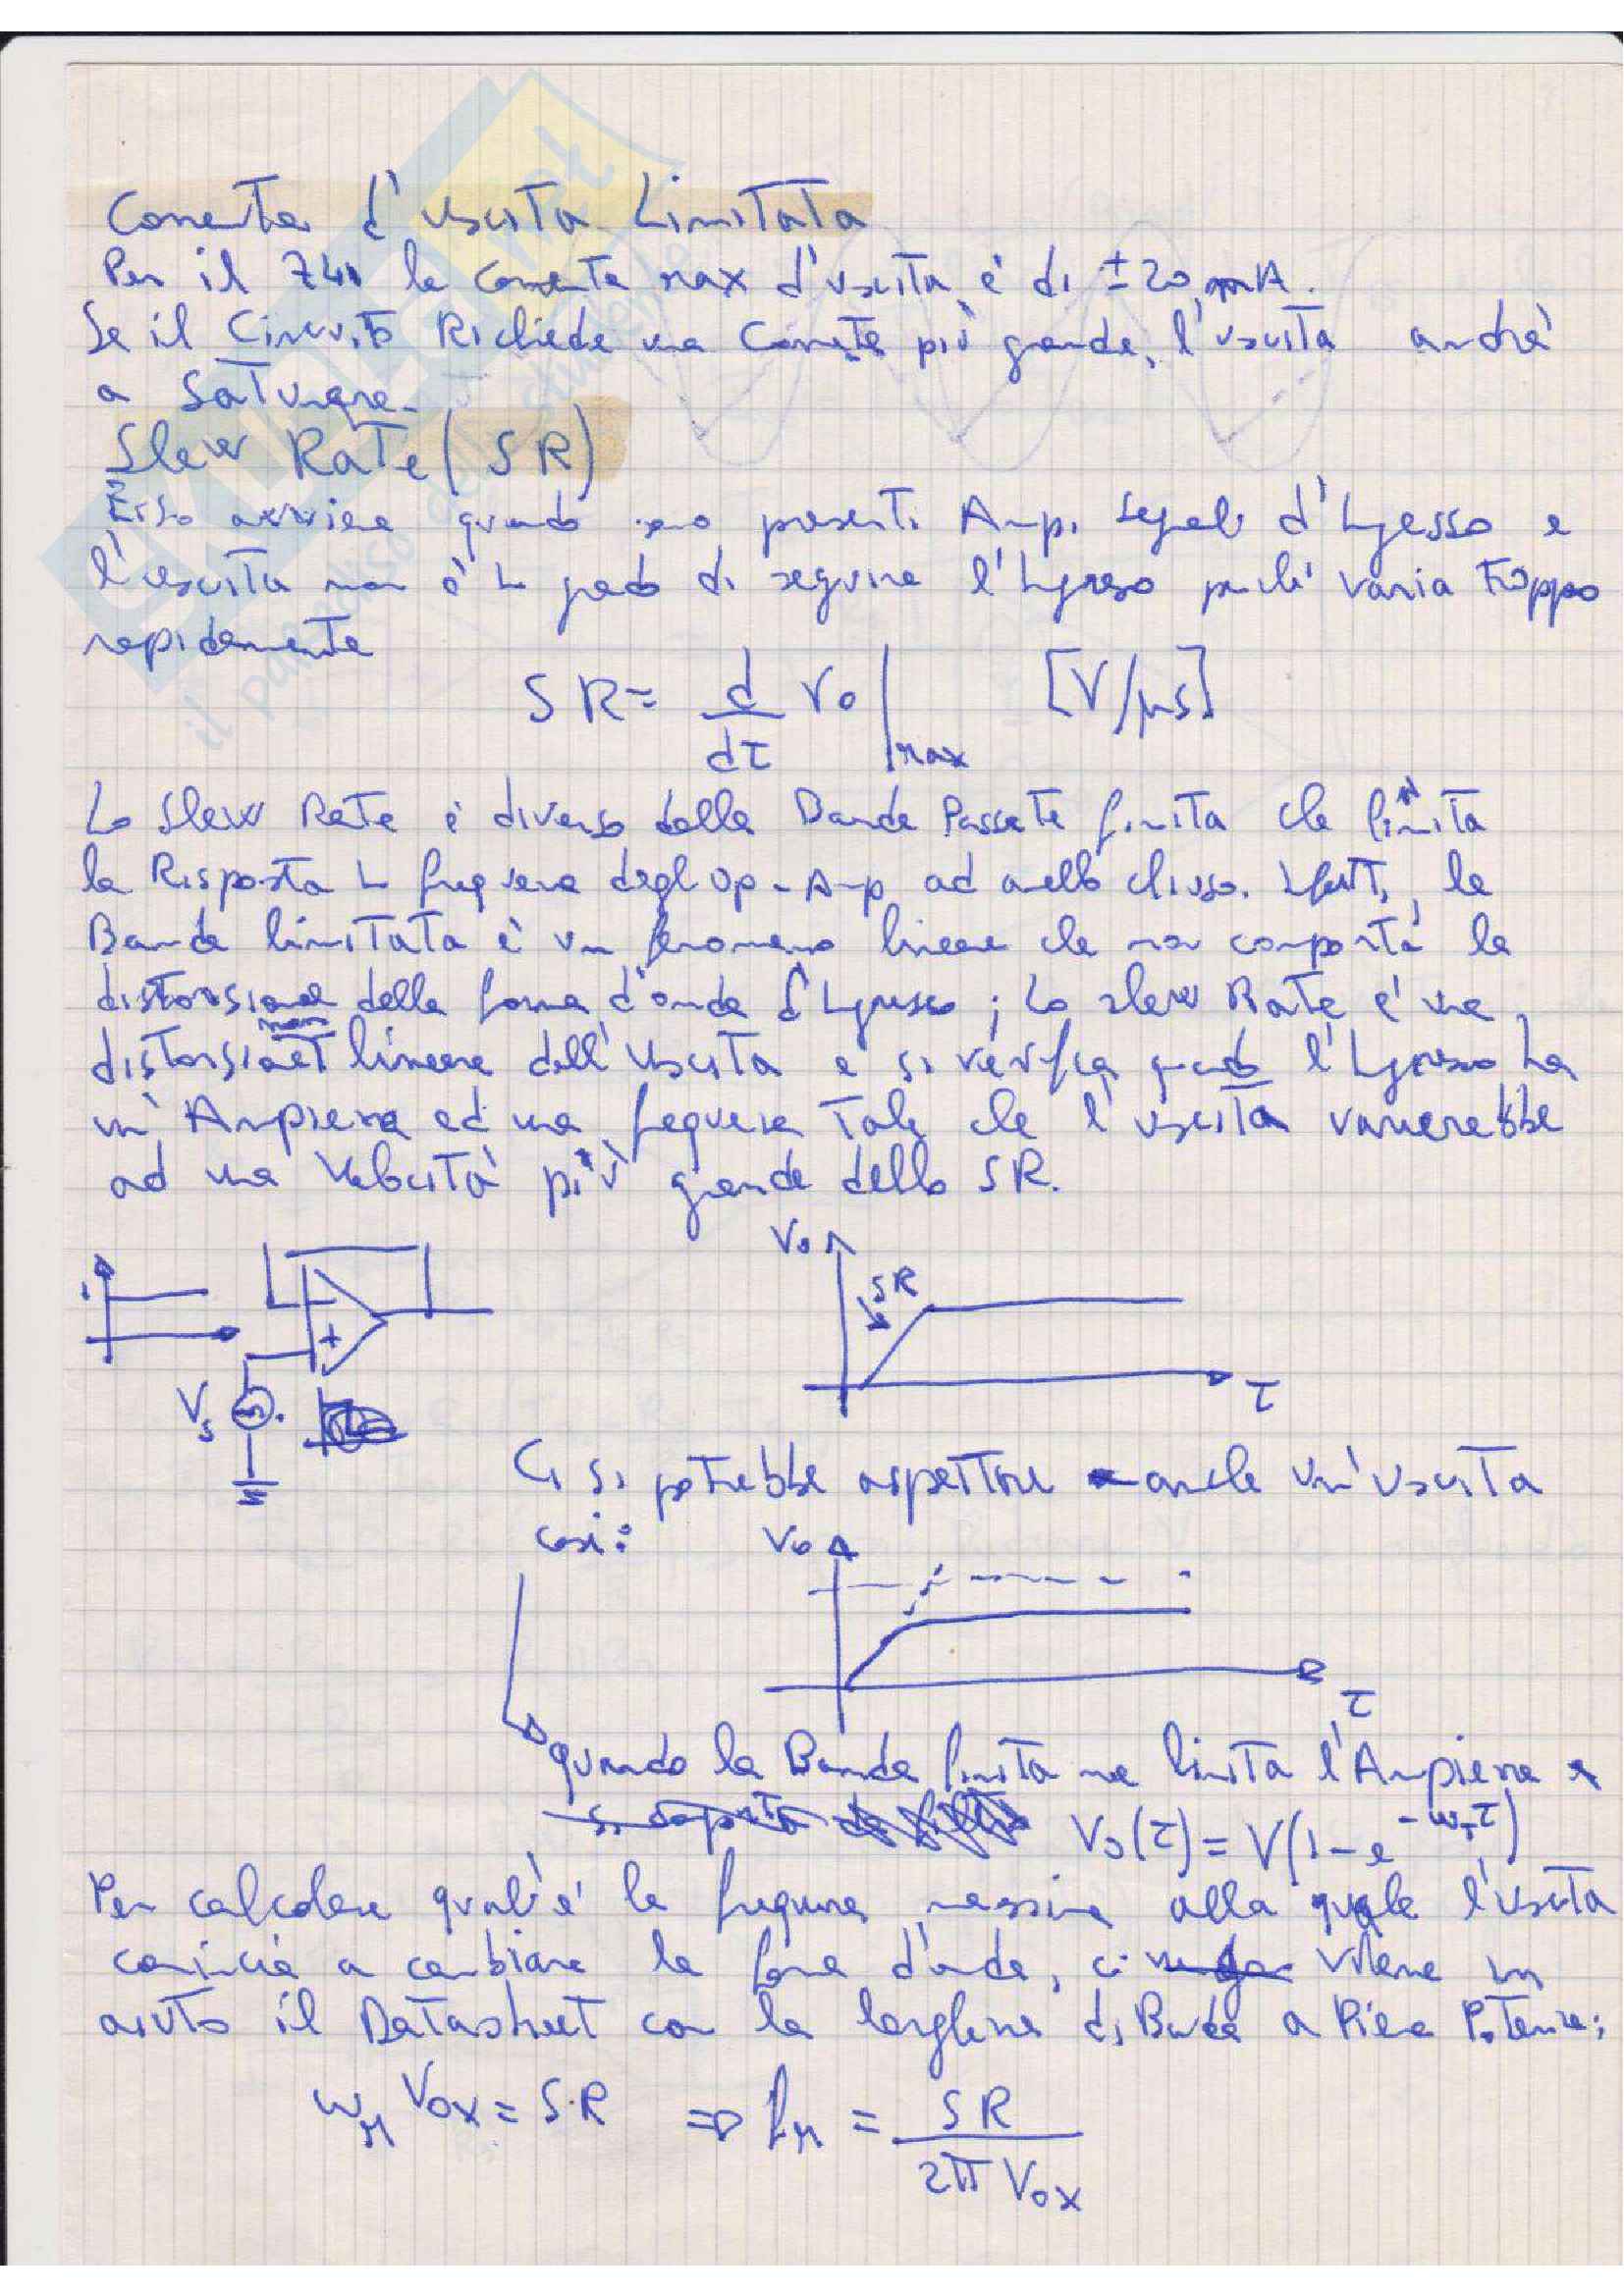 Corrente d'uscita Limitata
Per il 741 la corrente max d'uscita è di ±20 mA.
Se il Circuito Richiede una Corrente più grande, l'uscita andrà
a Saturare.
Slew Rate (SR)
Esso avviene quando sono presenti Ampi segnali d'Ingresso e
l'uscita non è in grado di seguire l'Ingresso perché varia Troppo
rapidamente
SR = d/dt Vo |max [V/μs]
Lo Slew Rate è diverso dalla Banda Passante finita che limita
la Risposta in frequenza degli Op-Amp ad anello chiuso. Infatti, la
Banda limitata è un fenomeno lineare che non comporta la
distorsione della forma d'onda d'Ingresso; Lo slew Rate è una
distorsione non lineare dell'Uscita e si verifica quando l'Ingresso ha
un'Ampiezza ed una frequenza Tale che l'uscita varierebbe
ad una Velocità più grande dello SR.
Vo
SR
1
-
+
t
Vs
Ci si potrebbe aspettare anche un'uscita
così:
Vo
t
quando la Banda finita ne limita l'Ampiezza e
Vo(t) = V(1-e^-ωTt)
Per calcolare qual'è la frequenza massima alla quale l'uscita
comincia a cambiare la forma d'onda, ci viene in
aiuto il Datasheet con la larghezza di Banda a Piena Potenza:
ωM Vox = SR ⇒ fM = SR / 2π Vox